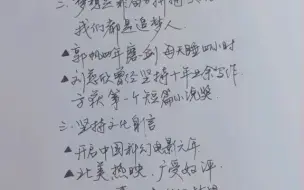 我们都是追梦人
▲郭帆四年磨一剑 每天睡四小时
▲刘慈欣曾经坚持十年业余写作
才获第一个短篇小说奖
三、坚持文化自信
▲开启中国科幻电影元年
▲北美热映、广受好评